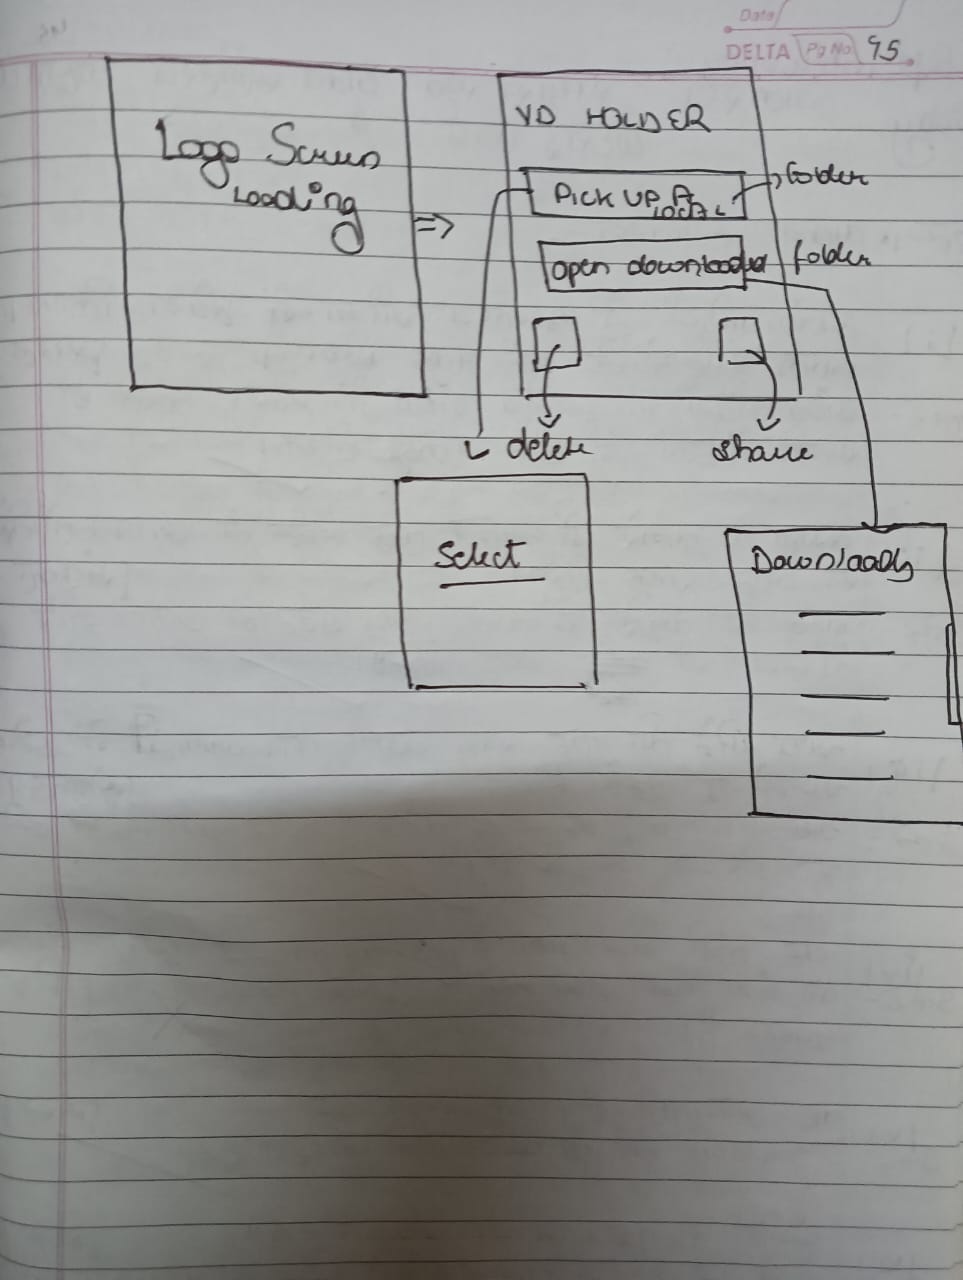 Date
DELTA Pg No 95
Logo Screen
Loading
=>
VD HOLDER
PICK UP A LOCAL folder
open downloaded folder
delete
share
Select
Downloads